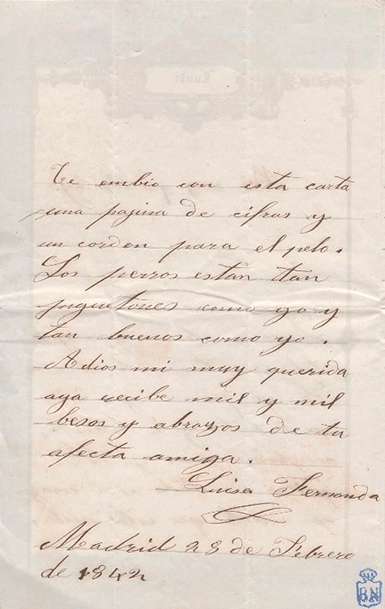 Te embio con esta carta
una pajina de cifras y
un cordon para el pelo.
Los perros estan tan
juguetones como yo y
tan buenos como yo.
Adios mi muy querida
aya recibe mil y mil
besos y abrazos de tu
afecta amiga.
Luisa Fernanda
Madrid 28 de Febrero
de 1842
BN